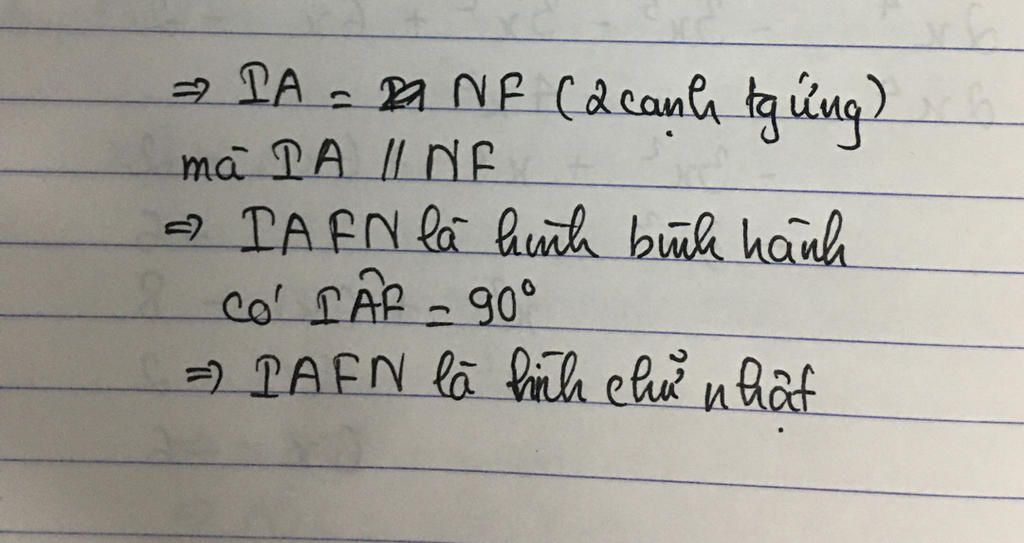 ⇒ IA = NF (2 cạnh tg ứng)
mà IA // NF
⇒ IAFN là hình bình hành
có IÂF = 90°
⇒ IAFN là hình chữ nhật